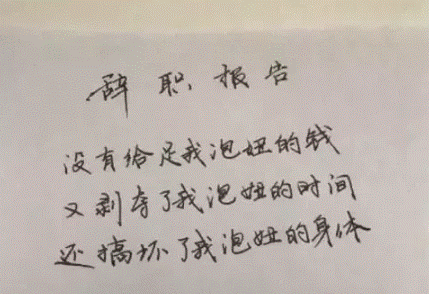 辞职报告
没有给足我泡妞的钱
又剥夺了我泡妞的时间
还搞坏了我泡妞的身体